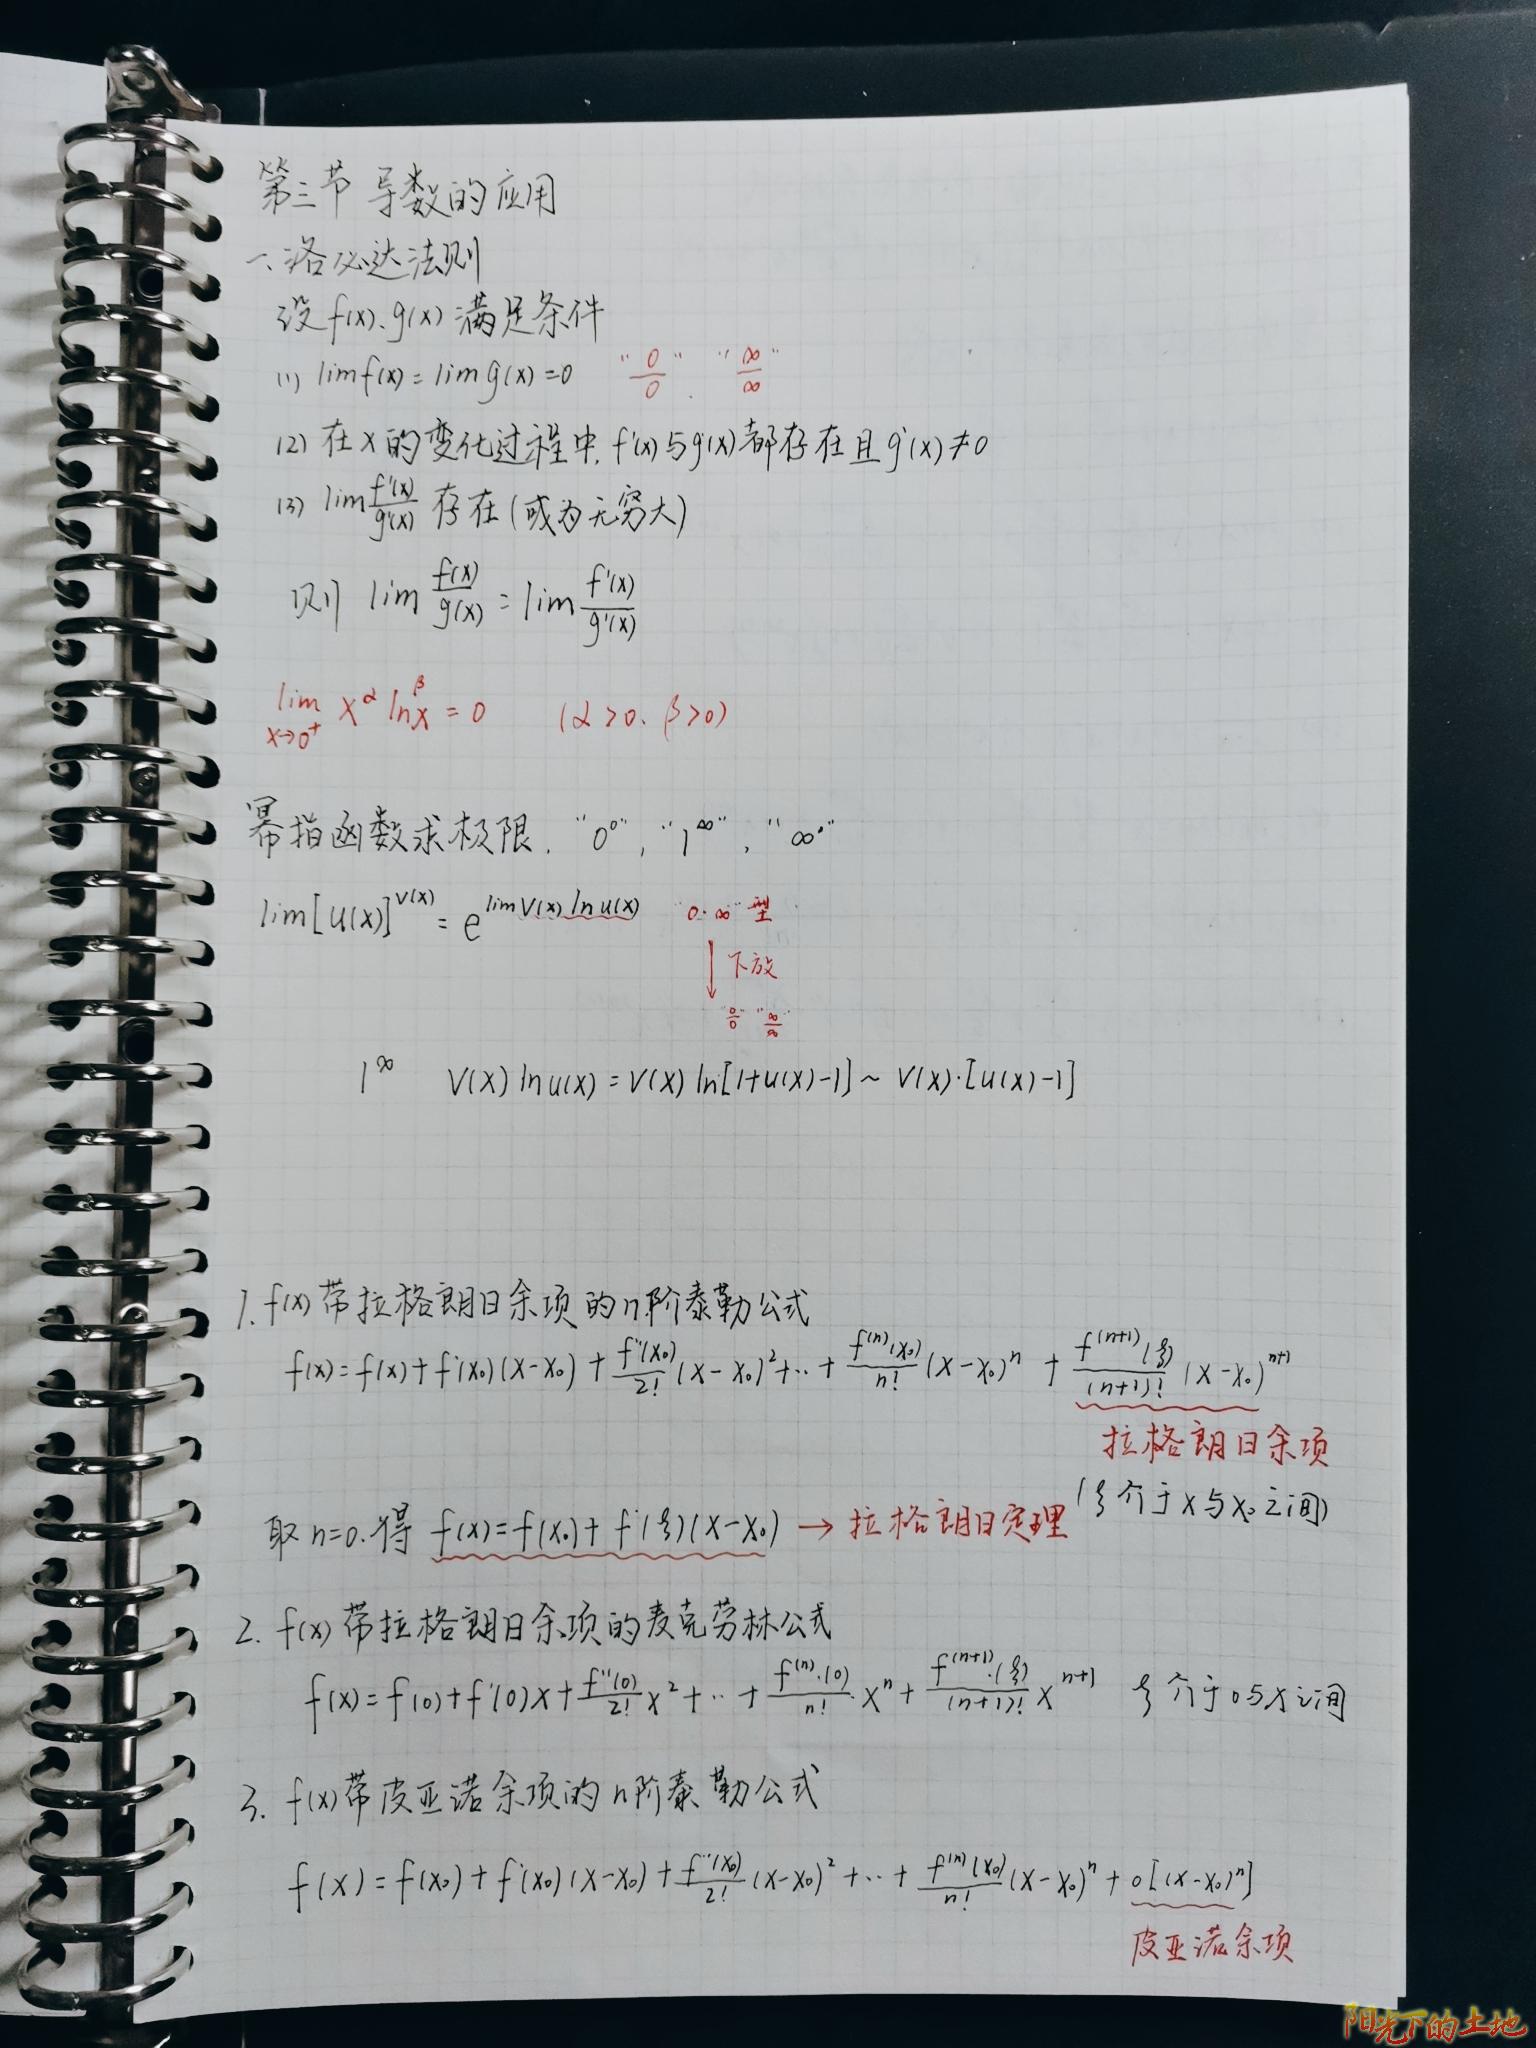 第三节 导数的应用
一、洛必达法则
设f(x)、g(x)满足条件
(1) lim f(x) = lim g(x) = 0 "0/0" 、 "∞/∞"
(2) 在x的变化过程中, f'(x)与g'(x)都存在且g'(x)≠0
(3) lim f'(x)/g'(x) 存在(或为无穷大)
则 lim f(x)/g(x) = lim f'(x)/g'(x)
lim x→0⁺ x^α ln^β x = 0 (α>0、β>0)
幂指函数求极限, "0⁰", "1^∞", "∞⁰"
lim[u(x)]^v(x) = e^(lim v(x) ln u(x)) "0·∞"型
下放
"0/0" "∞/∞"
1^∞ v(x) ln u(x) = v(x) ln[1+u(x)-1] ~ v(x)·[u(x)-1]
1. f(x)带拉格朗日余项的n阶泰勒公式
f(x) = f(x) + f'(x₀)(x-x₀) + f''(x₀)/2! (x-x₀)² + ··· + f^(n)(x₀)/n! (x-x₀)^n + f^(n+1)(ξ)/(n+1)! (x-x₀)^(n+1)
拉格朗日余项
(ξ介于x与x₀之间)
取n=0,得 f(x)=f(x₀)+f'(ξ)(x-x₀) → 拉格朗日定理
2. f(x)带拉格朗日余项的麦克劳林公式
f(x) = f(0) + f'(0)x + f''(0)/2! x² + ··· + f^(n)·(0)/n! x^n + f^(n+1)·(ξ)/(n+1)! x^(n+1) ξ介于0与x之间
3. f(x)带皮亚诺余项的n阶泰勒公式
f(x) = f(x₀) + f'(x₀)(x-x₀) + f''(x₀)/2! (x-x₀)² + ··· + f^(n)(x₀)/n! (x-x₀)^n + o[(x-x₀)^n]
皮亚诺余项
阳光下的土地